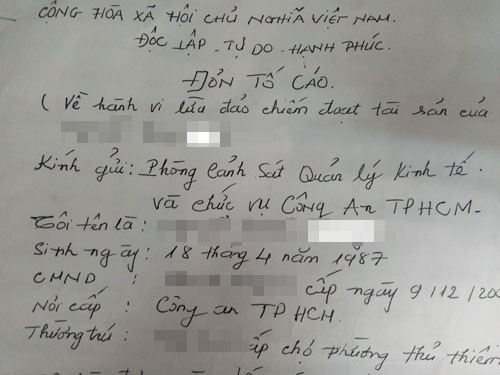 CỘNG HÒA XÃ HỘI CHỦ NGHĨA VIỆT NAM.
ĐỘC LẬP - TỰ DO - HẠNH PHÚC.
ĐƠN TỐ CÁO.
( Về hành vi lừa đảo chiếm đoạt tài sản của
Kính gửi: Phòng Cảnh Sát Quản lý Kinh tế
và chức vụ Công An TPHCM-
Tôi tên là :
Sinh ngày : 18 tháng 4 năm 1987
CMND : cấp ngày 9/12/200
Nơi cấp : Công an TP HCM.
Thường trú : ấp chợ phường thủ thiêm